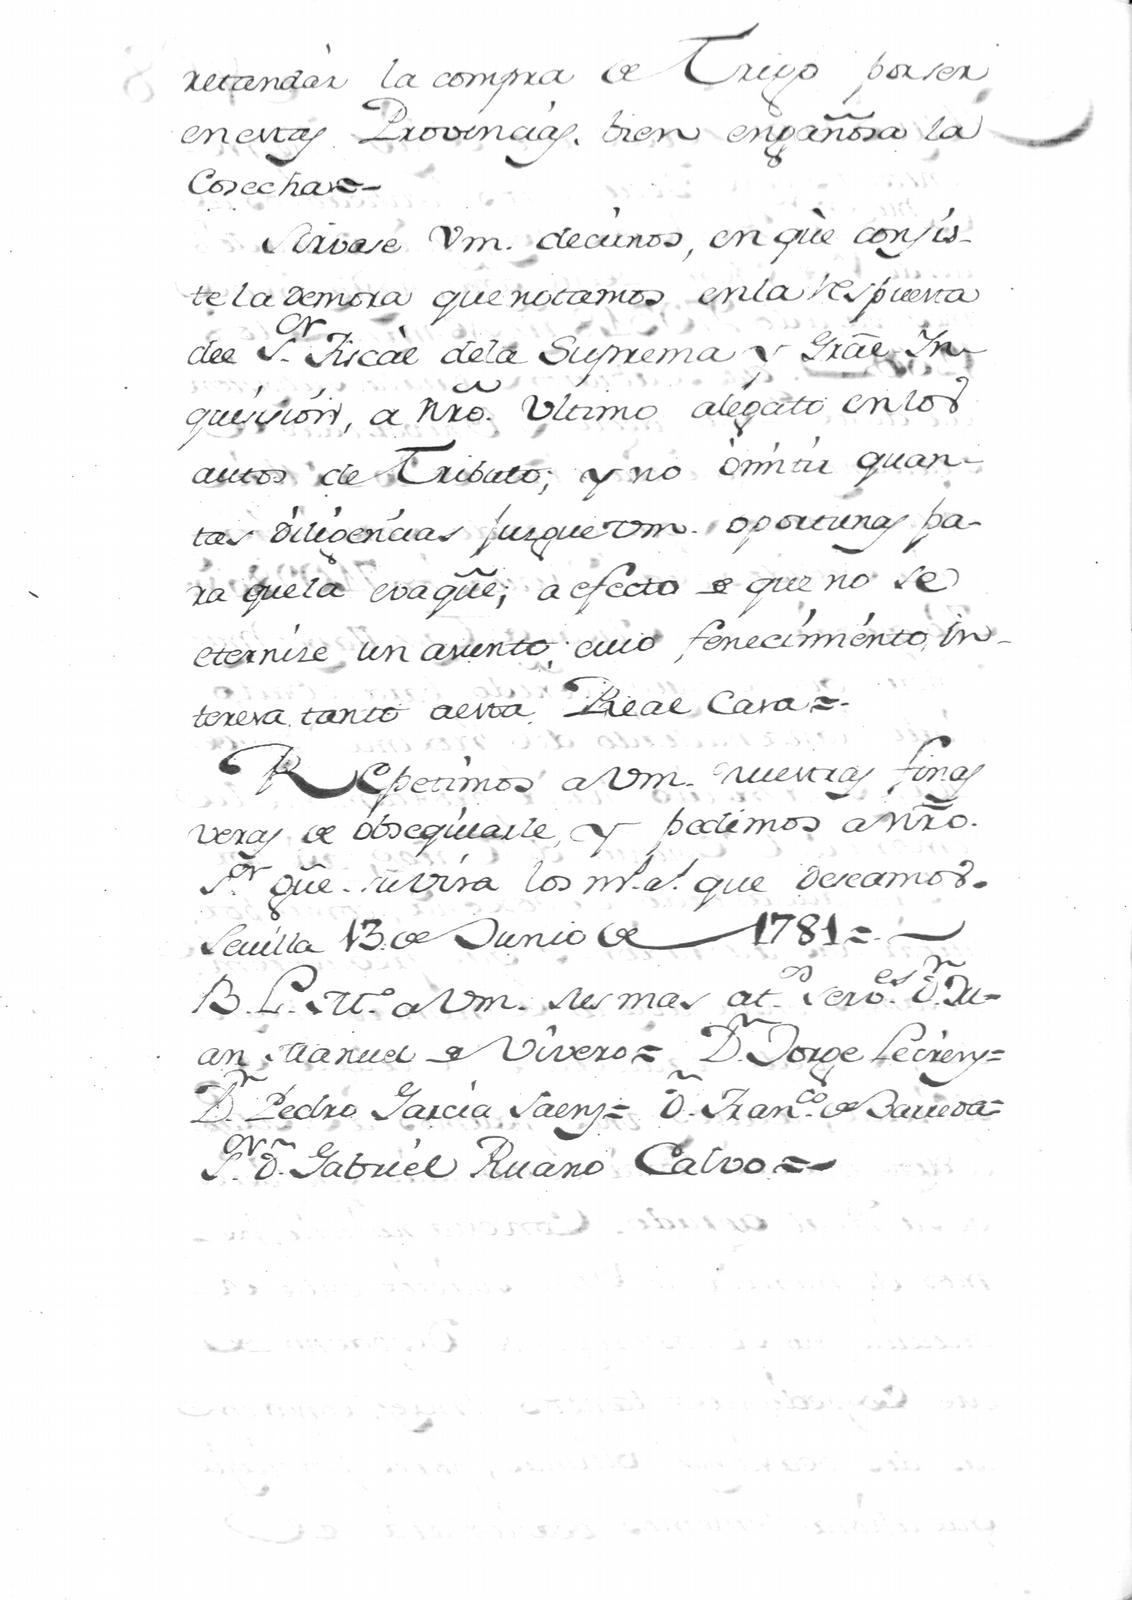 retardàr la compra de Trigo por ser
en estas Provincias. bien engañosa la
Cosecha=-
Sirvase Vm. decirnos, en què consis-
te la demora que notamos en la respuesta
del S.or Fiscàl de la Suprema y Grãl In-
quisición, a Nr̃o. Ultimo alegato en los
autos de Tributo; y no òmitir quan-
tas diligencias juzgue Vm. oportunas pa-
ra que la evaqũe; a efecto de que no se
eternise un asunto, cuio fenecimiento in-
teresa tanto a esta Real Casa=-
Repetimos a Vm. nuestras finas
veras de obsequiarle, y pedimos a Nr̃o.
S.or gũe. su vida los m.s a.s que deseamos.
Sevilla 13 de Junio de 1781=-
B. L. M.o a Vm. sus mas at.os serv.es D.n Ju-
an Manuel de Vivero= D.n Jorge
D.n Pedro Garcia Saenz= D.n Fran.co de Barreda=
S.or D.n Gabriel Ruano Calvo=-